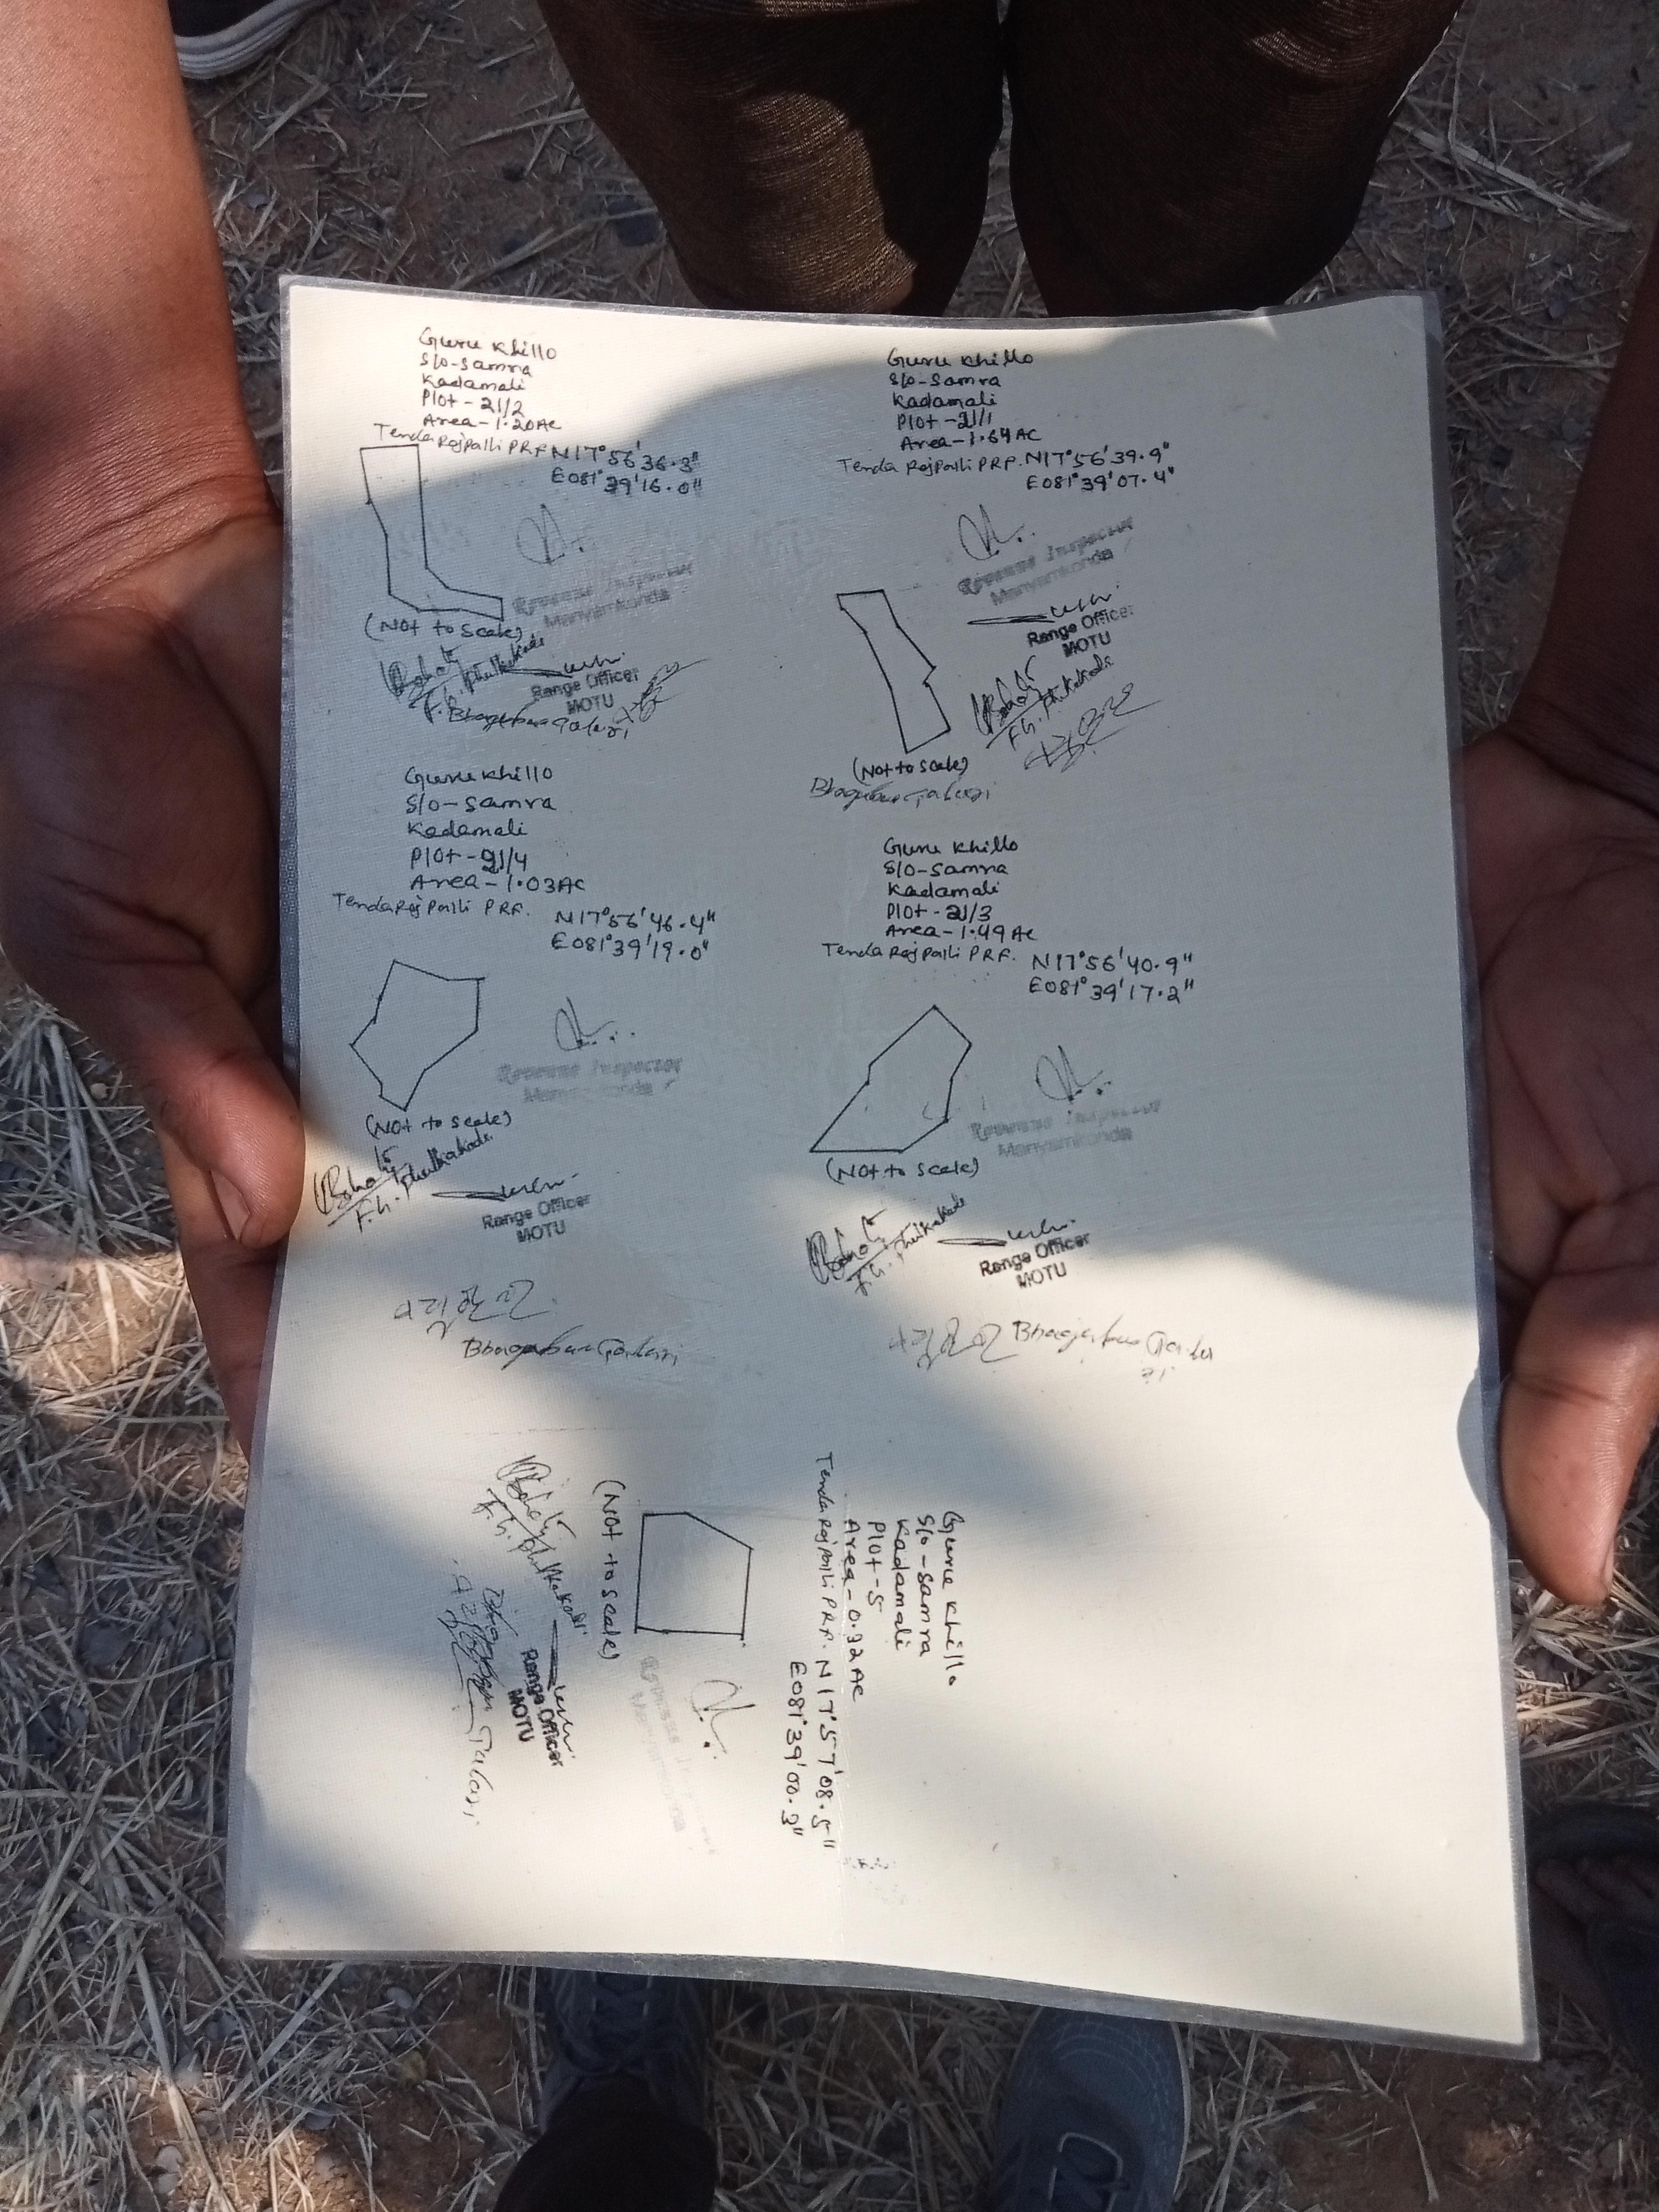 Guru Khillo
S/o-Samra
Kadamali
Plot-21/2
Area-1.20AC
Tenda Rajpalli PRF N17°56'36.3"
E081°39'16.0"
Revenue Inspector
Manyamkonda
(Not to Scale)
Range Officer
MOTU
Guru Khillo
S/o-Samra
Kadamali
Plot-21/1
Area-1.64AC
Tenda Rajpalli PRF. N17°56'39.9"
E081°39'07.4"
Revenue Inspector
Manyamkonda
Range Officer
MOTU
(Not to Scale)
Guru Khillo
S/o-Samra
Kadamali
Plot-21/4
Area-1.03AC
Tenda Rajpalli PRF.
N17°56'46.4"
E081°39'19.0"
Revenue Inspector
Manyamkonda
(Not to Scale)
Range Officer
MOTU
Guru Khillo
S/o-Samra
Kadamali
Plot-21/3
Area-1.49AC
Tenda Rajpalli PRF. N17°56'40.9"
E081°39'17.2"
Revenue Inspector
Manyamkonda
(Not to Scale)
Range Officer
MOTU
Guru Khillo
S/o-Samra
Kadamali
Plot-5
Area-0.32AC
Tenda Rajpalli PRF. N17°57'08.5"
E081°39'00.3"
(Not to Scale)
Range Officer
MOTU